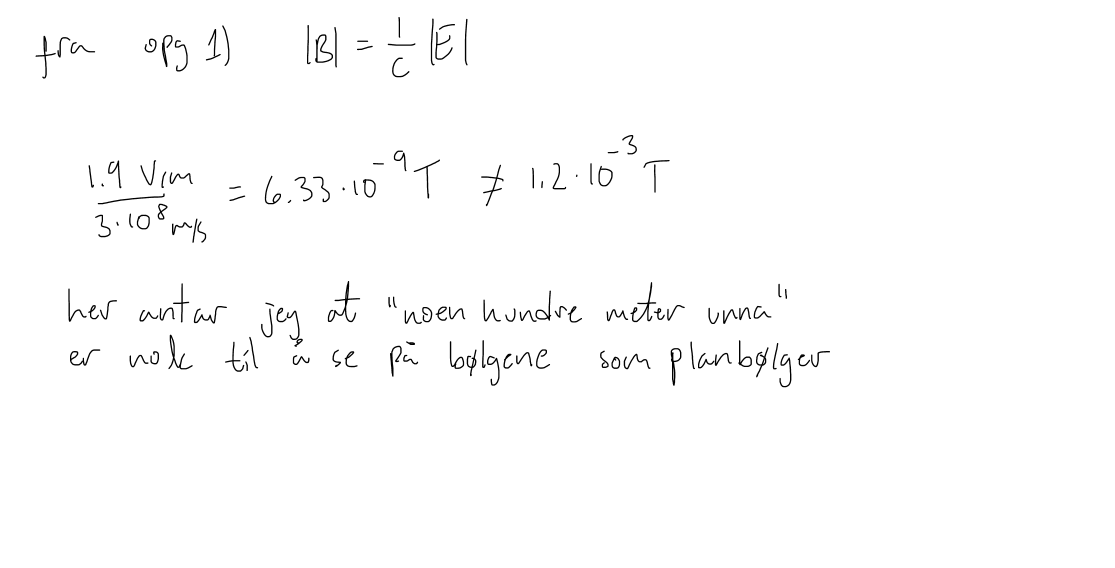 fra opg 1) |B| = 1/c |E|
1.9 V/m / 3·10⁸ m/s = 6.33·10⁻⁹ T ≠ 1.2·10⁻³ T
her antar jeg at "noen hundre meter unna"
er nok til å se på bølgene som planbølger